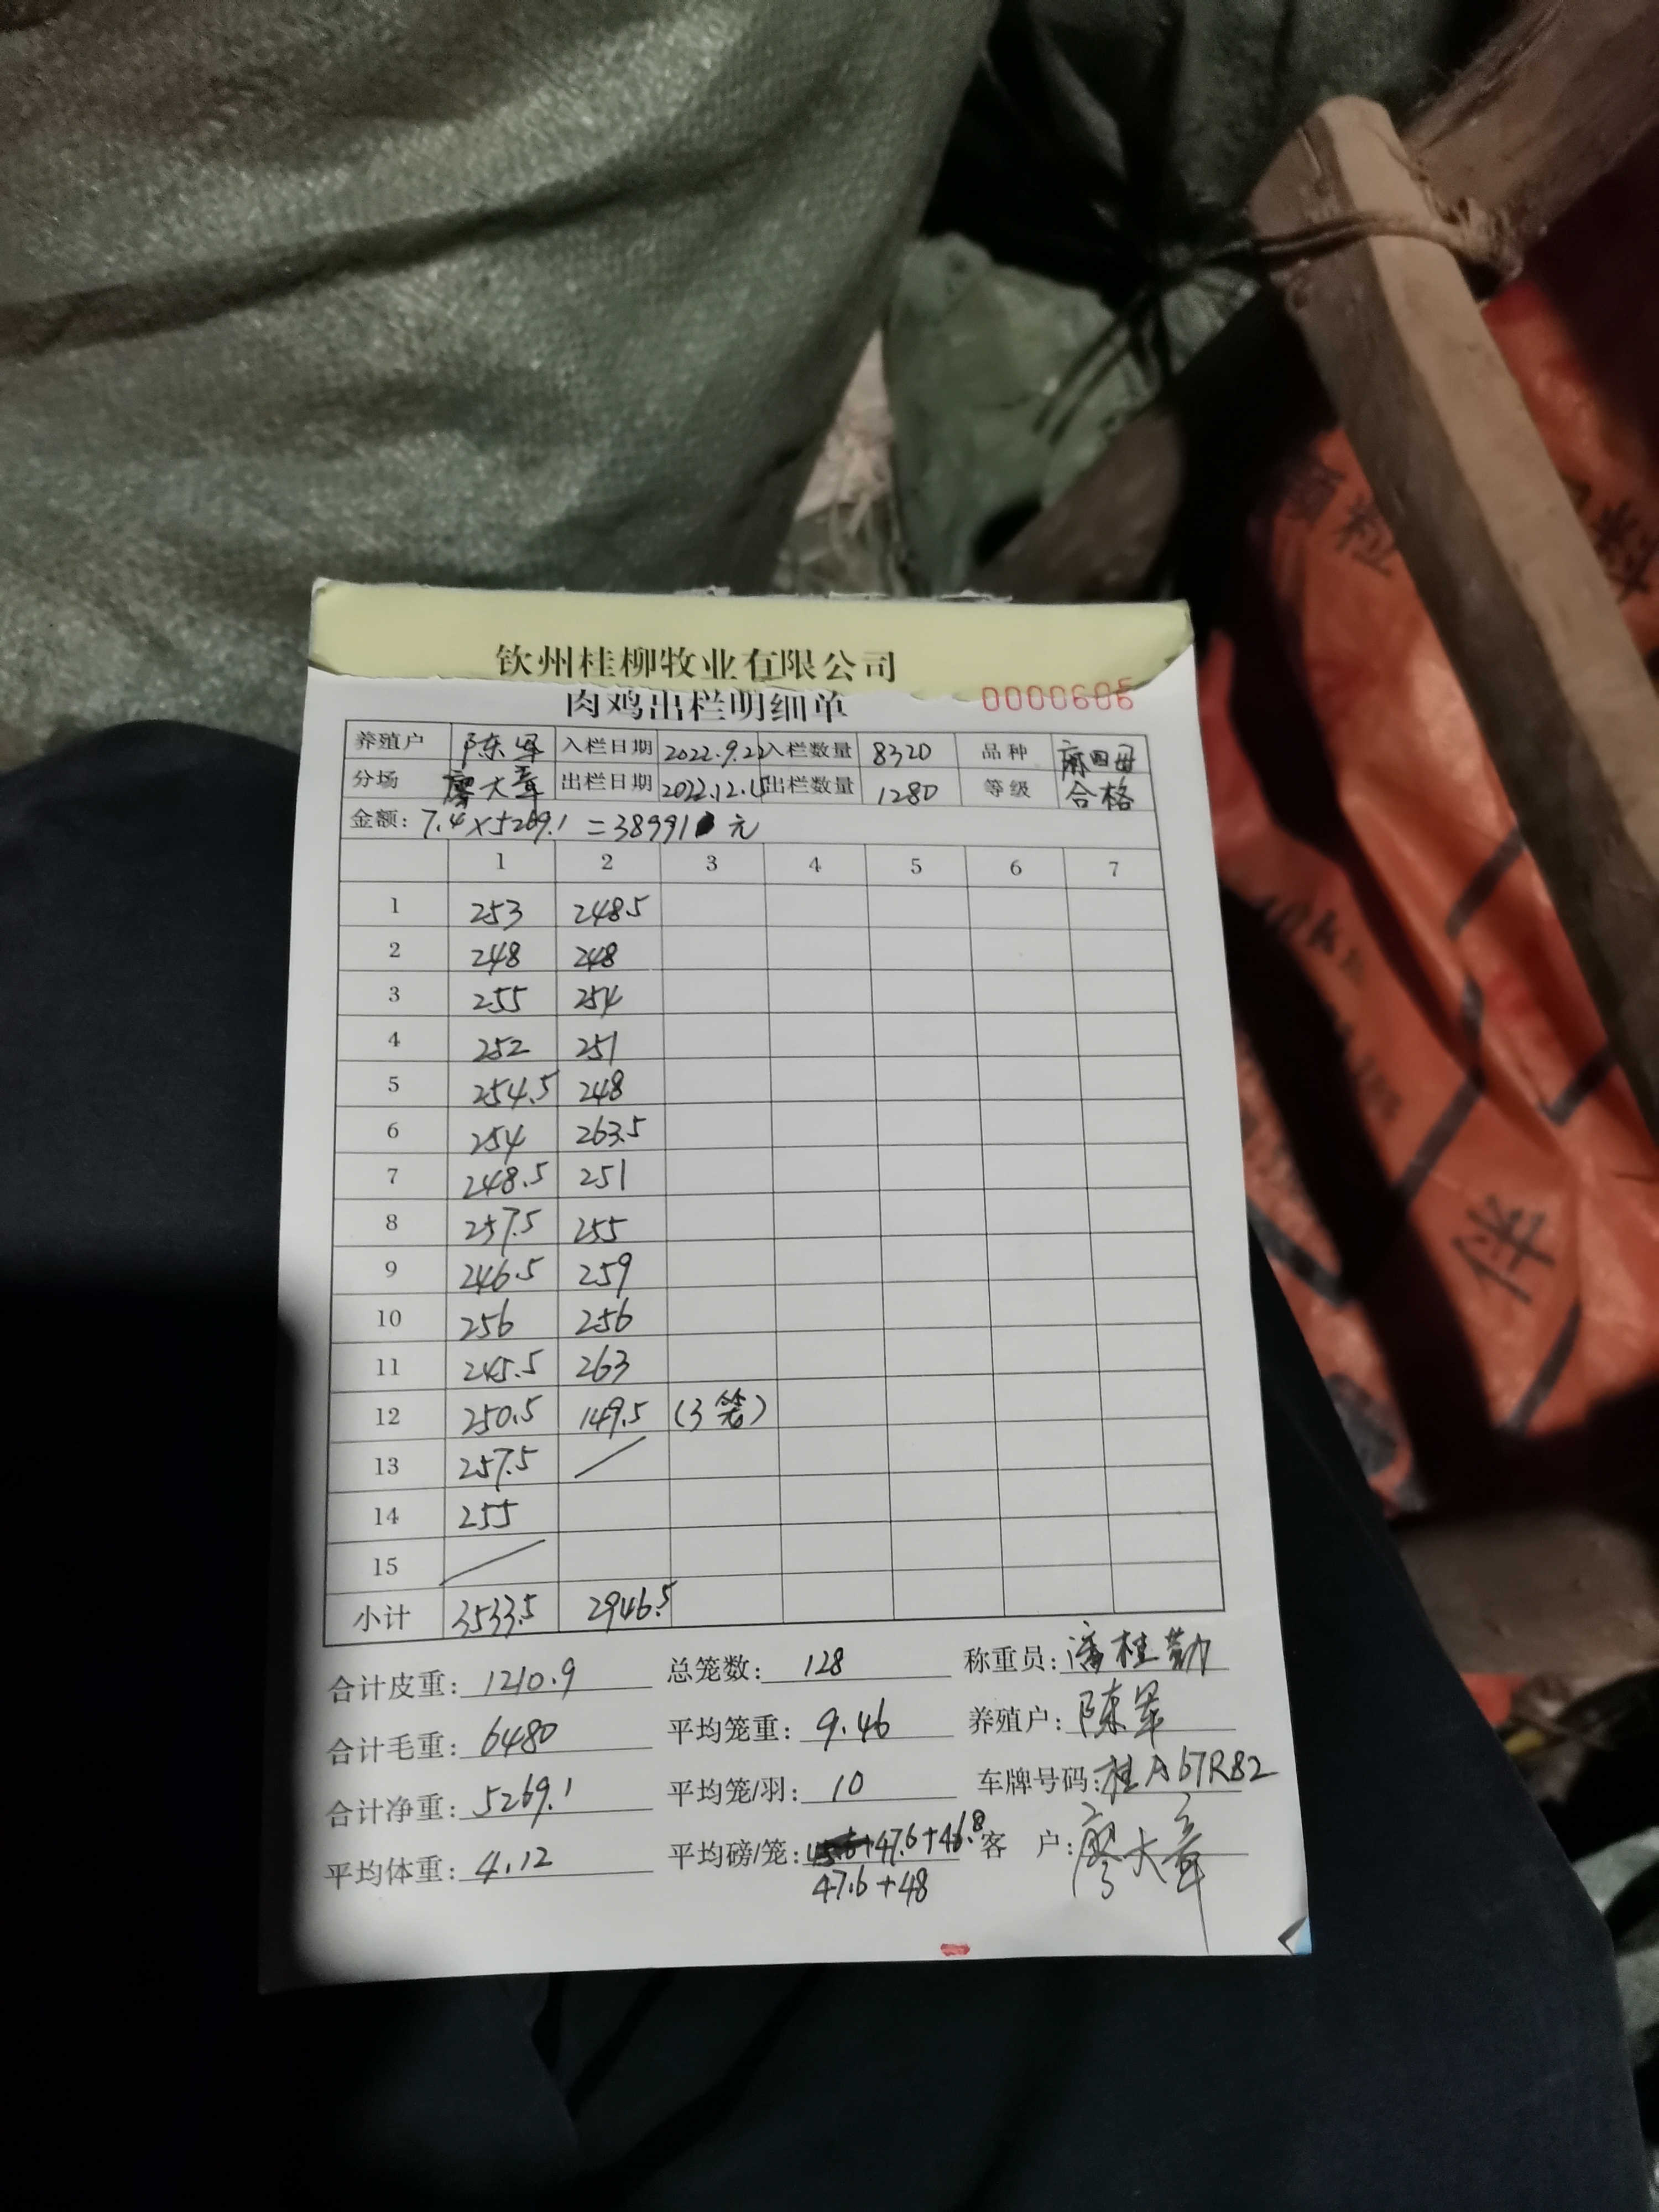 钦州桂柳牧业有限公司
肉鸡出栏明细单 0000606
养殖户 陈军 入栏日期 2022.9.22 入栏数量 8320 品种 麻四母
分场 廖大章 出栏日期 2022.12.15 出栏数量 1280 等级 合格
金额: 7.4×5269.1=38991元
1 2 3 4 5 6 7
1 253 248.5
2 248 248
3 255 254
4 252 251
5 254.5 248
6 254 263.5
7 248.5 251
8 257.5 255
9 246.5 259
10 256 256
11 245.5 263
12 250.5 149.5 (3笼)
13 257.5
14 255
15
小计 3533.5 2946.5
合计皮重: 1210.9 总笼数: 128 称重员: 潘桂勤
合计毛重: 6480 平均笼重: 9.46 养殖户: 陈军
合计净重: 5269.1 平均笼/羽: 10 车牌号码: 桂A67R82
平均体重: 4.12 平均磅/笼: +47.6+46.8 客 户: 廖大章
47.6+48
料
伴